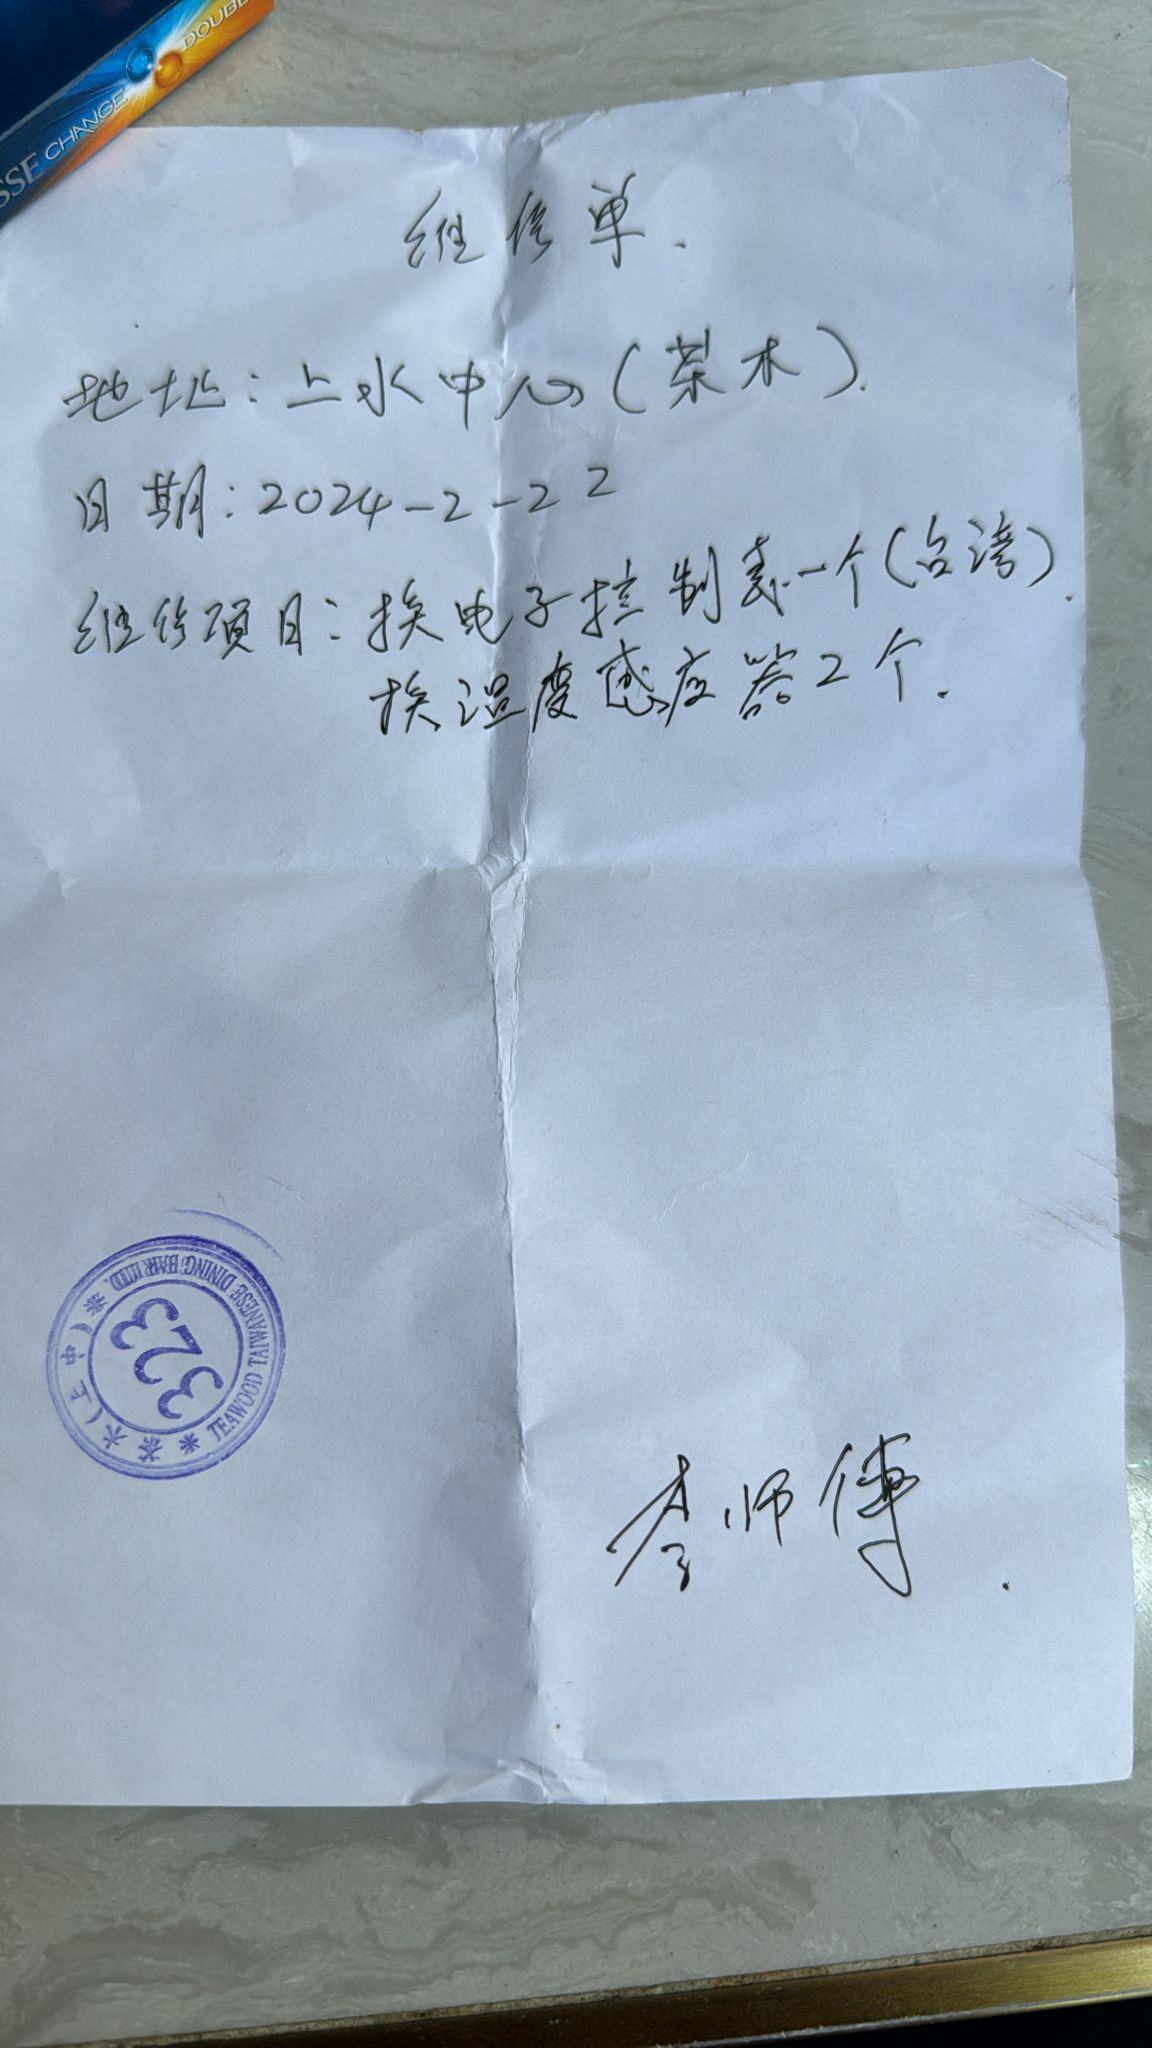 SSE CHANGE DOUBL
维修单.
地址:上水中心(茶木).
日期:2024-2-22
维修项目:换电子控制表一个(台湾).
换温度感应器2个.
TEAWOOD TAIWANESE DINING BAR LTD.
323
茶木(上中)
李师傅.